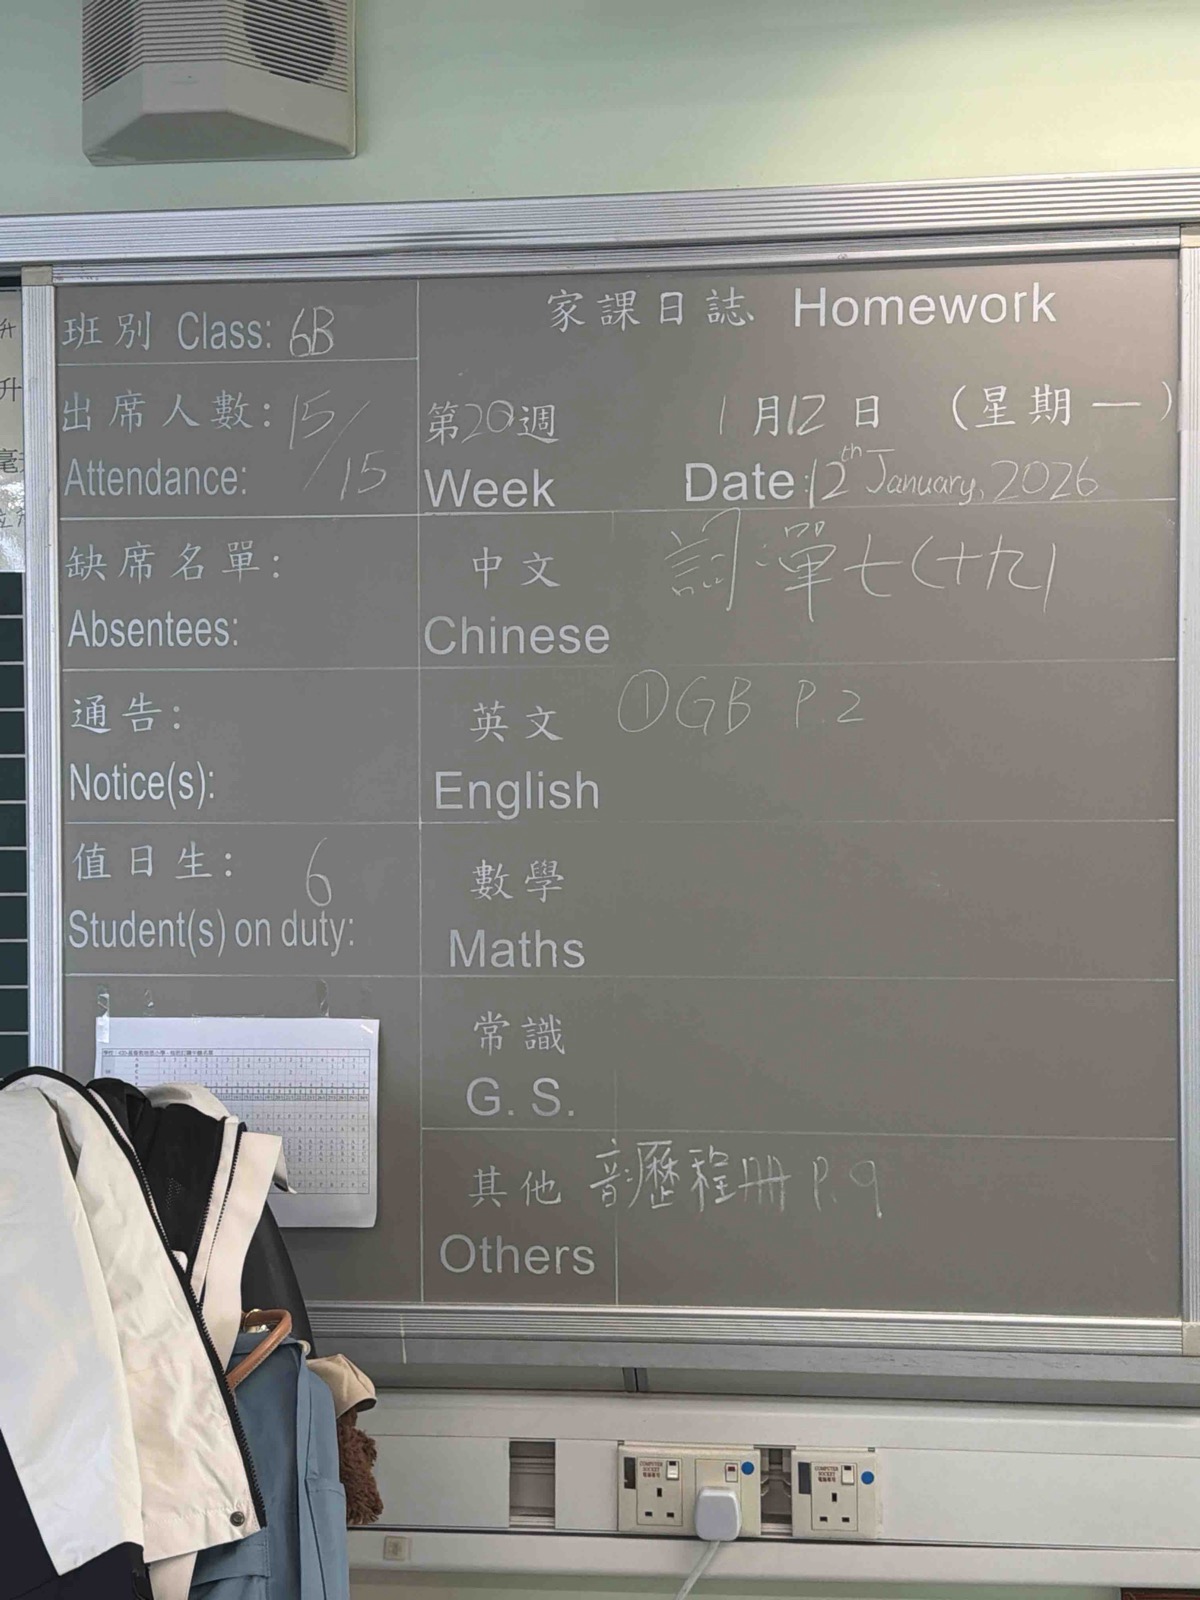 家課日誌 Homework
班別 Class: 6B
出席人數: 15/15
Attendance:
第20週
Week
1月12日 (星期一)
Date: 12th January, 2026
缺席名單:
Absentees:
中文
Chinese
詞:單七(十九)
通告:
Notice(s):
英文
English
①GB P.2
值日生: 6
Student(s) on duty:
數學
Maths
常識
G. S.
其他
Others
音:歷程冊 P.9
COMPUTER
SOCKET
電腦專用
COMPUTER
SOCKET
電腦專用